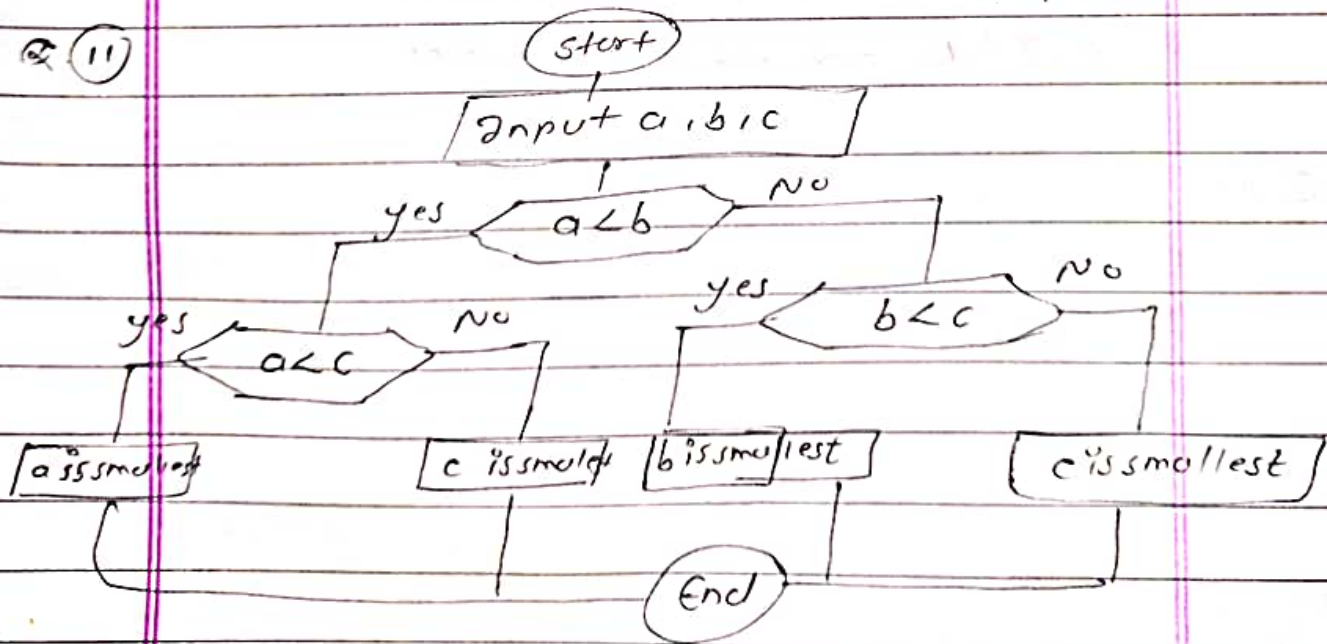 Q. 11
Start
Input a, b, c
yes a<b No
yes b<c No
yes a<c No
a is smallest c is smalest b is smallest c is smallest
End